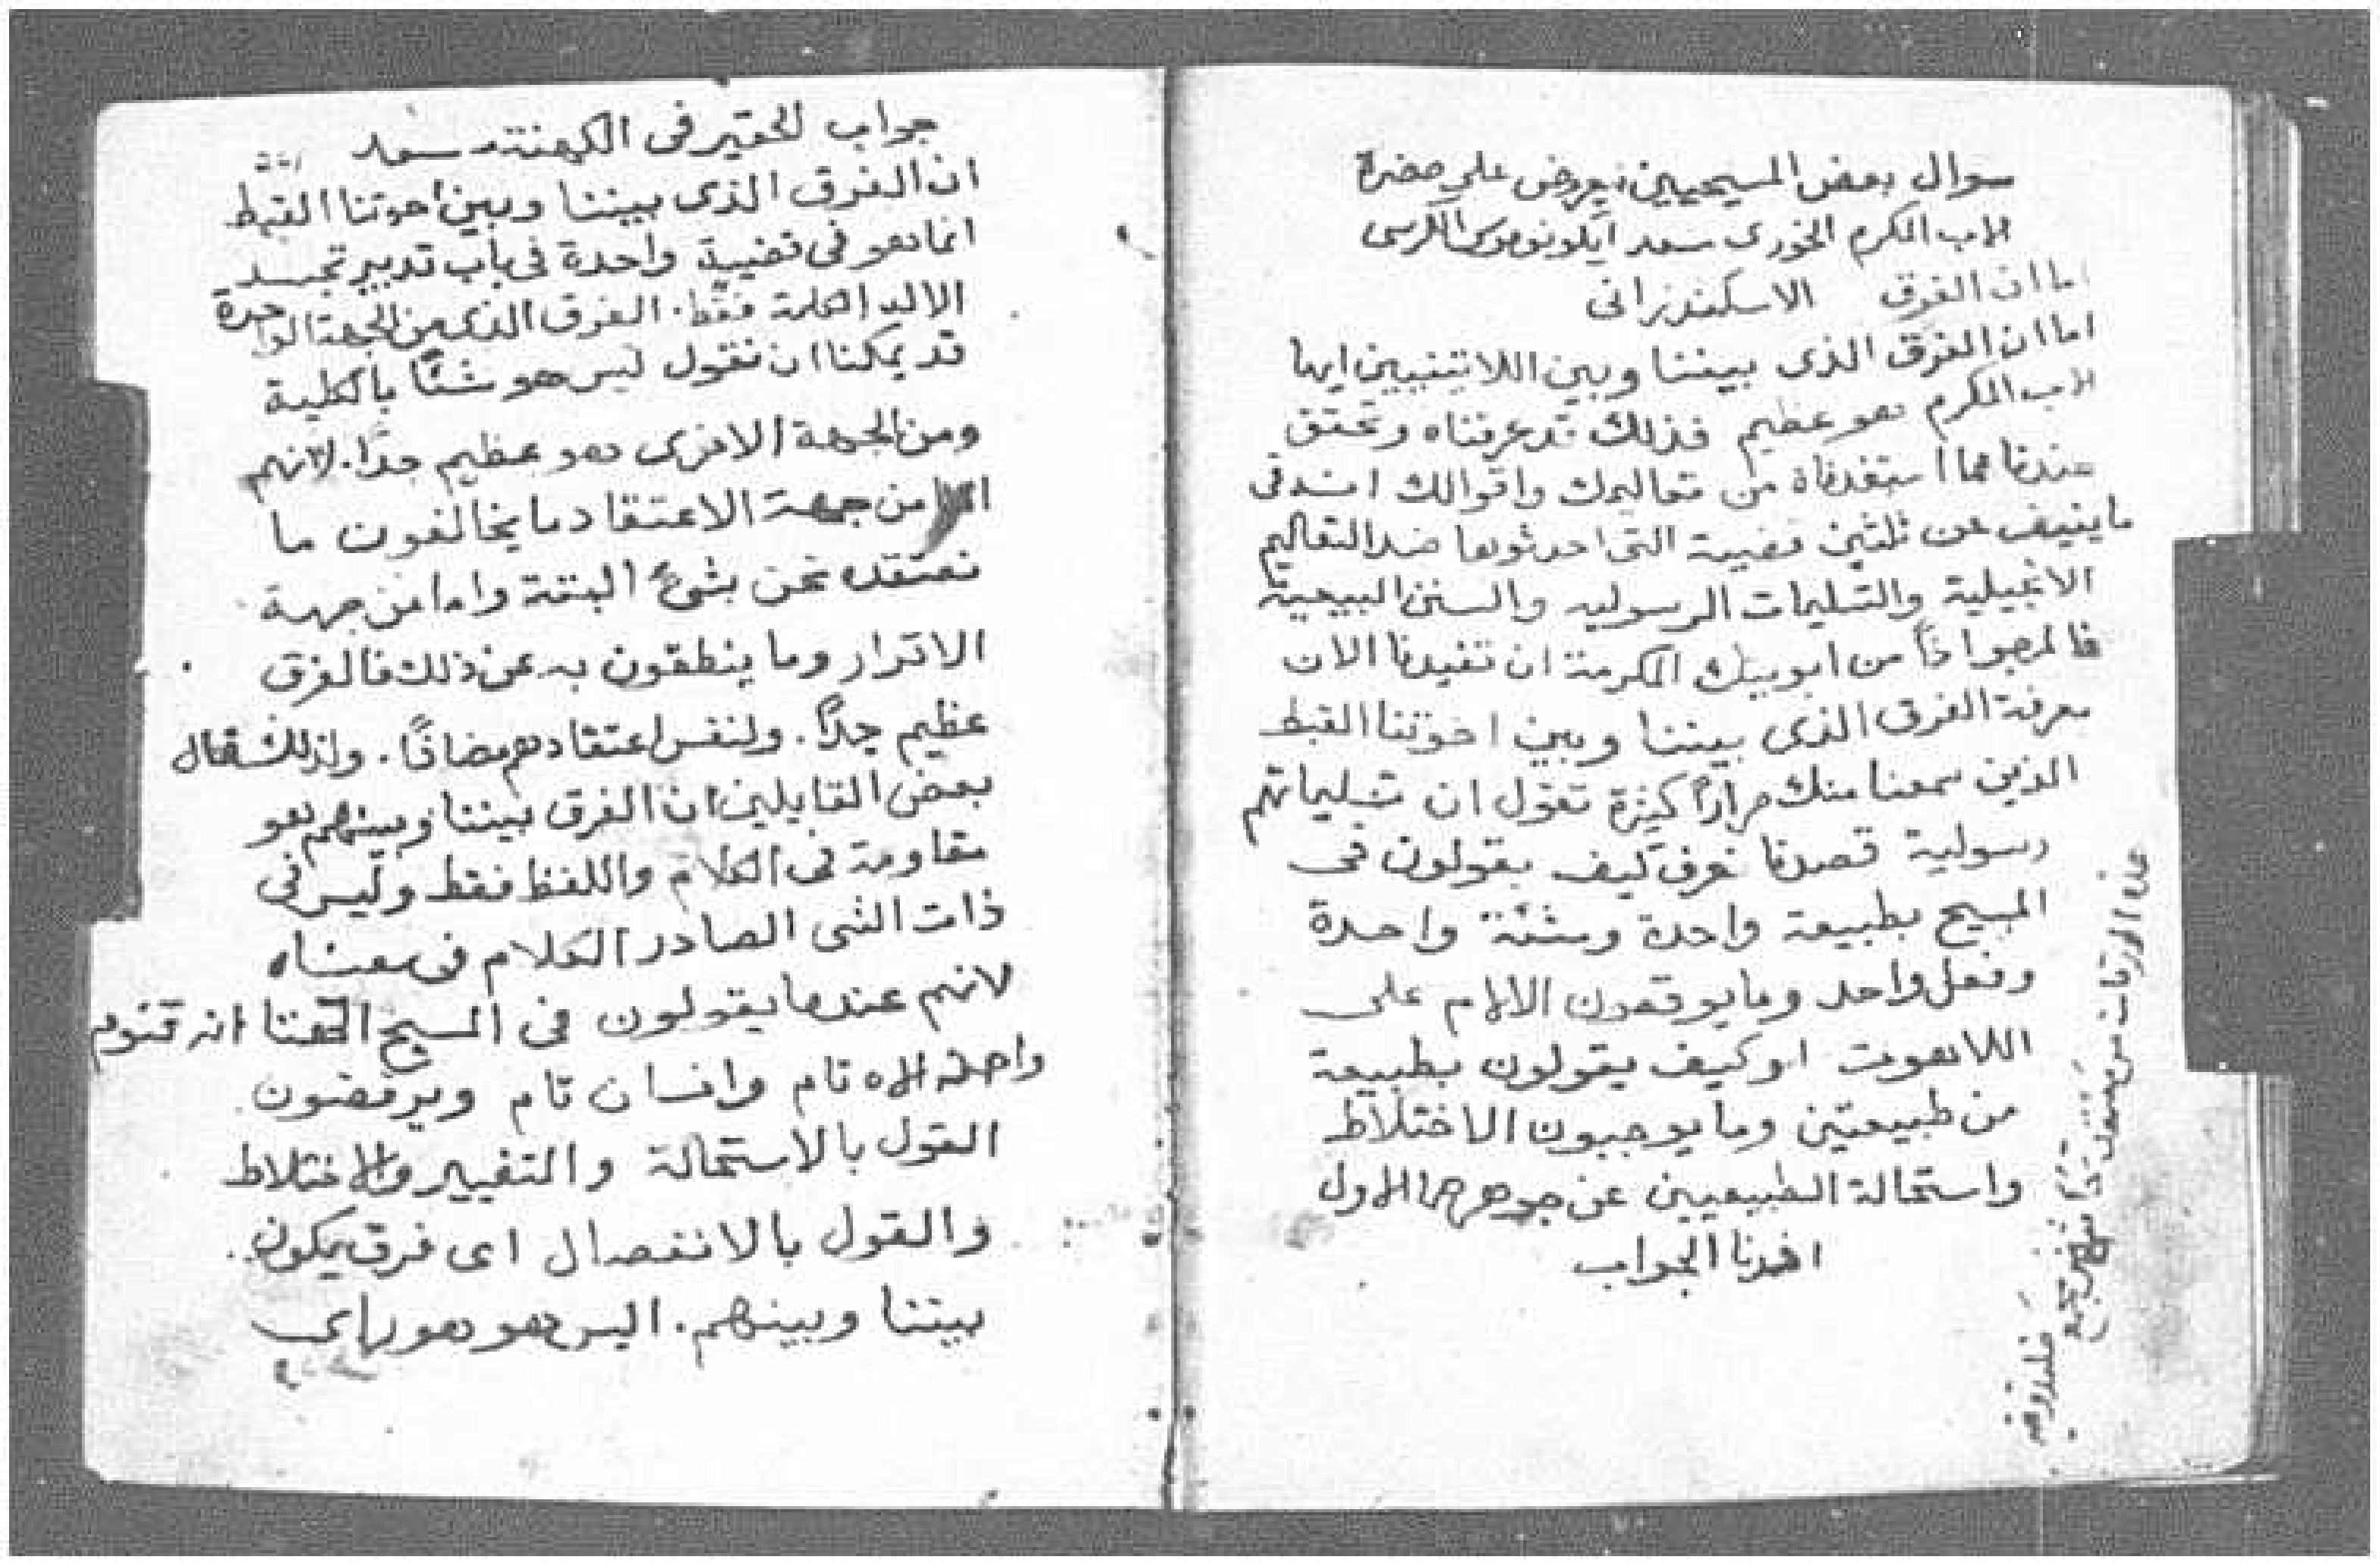 سوال بعض المسيحيين يعرض على حضرة
الاب المكرم الخورى سعد ايكونوموس الكرسى
اما ان الفرق الاسكندرانى
اما ان الفرق الذى بيننا وبين اللاتينيين ايها
الاب المكرم هو عظيم فذلك قد عرفناه وتحقق
عندنا مما استفدناة من تعاليمك واقوالك انه فى
ما ينيف عن ثلثين قضيية التى احدثوها ضد التعاليم
الانجيلية والتسليمات الرسوليه والسنن البيعية
فالمرجوا من ابويتك المكرمة ان تفيدنا الان
معرفة الفرق الذى بيننا وبين اخوتنا القبط
الذين سمعنا منك مرارًا كثيرة تقول ان تسليماتهم
رسولية قصدنا نعرف كيف يقولون فى
المسيح بطبيعة واحدة ومشئة واحدة
وفعل واحد وما يوقعون الالام على
اللاهوت او كيف يقولون بطبيعة
من طبيعتين وما يوجبون الاختلاط
واستحالة الطبيعيين عن جوهرهما الاول
افدنا الجواب
هذه الورقات من
جواب الحقير فى الكهنة سعد
ان الفرق الذى بيننا وبين اخوتنا القبط
انما هو فى قضيية واحدة فى باب تدبير تجسد
الاله الكلمة فقط. الفرق الذى من الجهة الواحدة
قد يمكننا ان نقول ليس هو شئًا بالكلية
ومن الجهة الاخرى هو عظيم جدًا. لانهم
اما من جهة الاعتقاد ما يخالفون ما
نعتقده نحن بشئ البتة واما من جهة
الاقرار وما ينطقون به عن ذلك فالفرق
عظيم جدًا. ولنفس اعتقادهم مضادًا. ولذلك قال
بعض القايلين ان الفرق بيننا وبينهم هو
مقاومة فى الكلام واللفظ فقط وليس فى
ذات الشى الصادر الكلام فى معناه
لانهم عندما يقولون فى المسيح الهنا انه قنوم
واحد اله تام وانسان تام ويرفضون
القول بالاستحالة والتغيير والاختلاط
والقول بالانفصال اى فرق يكون
بيننا وبينهم. اليس هو هو راى